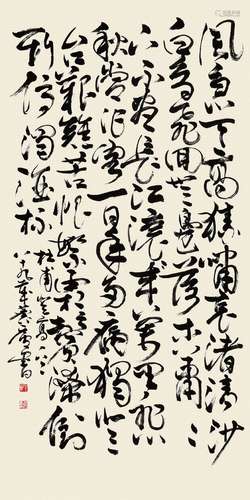 風急天高猿嘯哀渚清沙
白鳥飛回無邊落木蕭〻
下不盡長江滾〻來萬里悲
秋常作客百年多病獨登
台艱難苦恨繁霜鬢潦倒
新停濁酒杯
杜甫登高
八十九